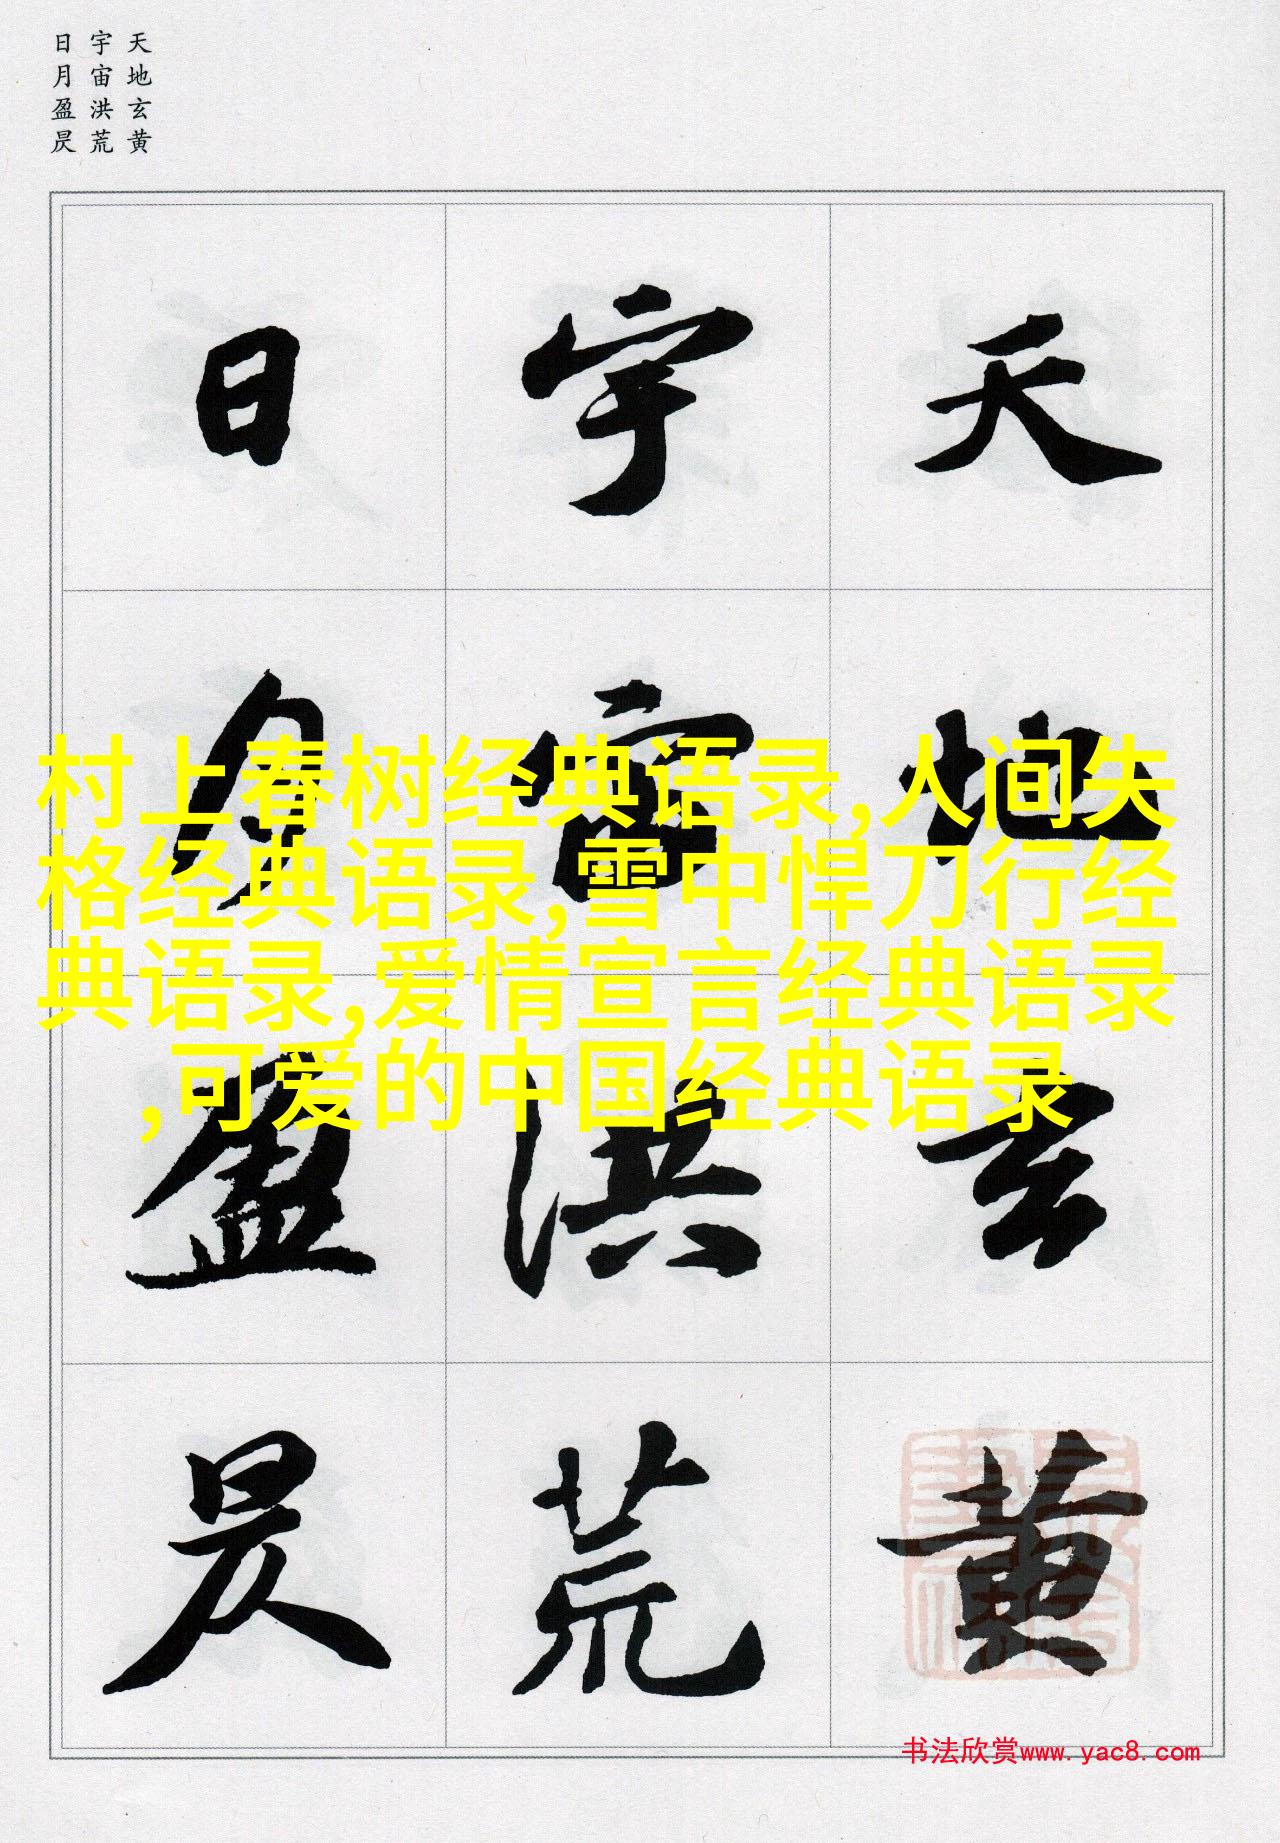 天地玄黄
宇宙洪荒
日月盈昃
天地玄黄
宇宙洪荒
日月盈昃
村上春树经典语录,人间失
格经典语录,雪中悍刀行经
典语录,爱情宣言经典语录
,可爱的中国经典语录
书法欣赏www.yac8.com